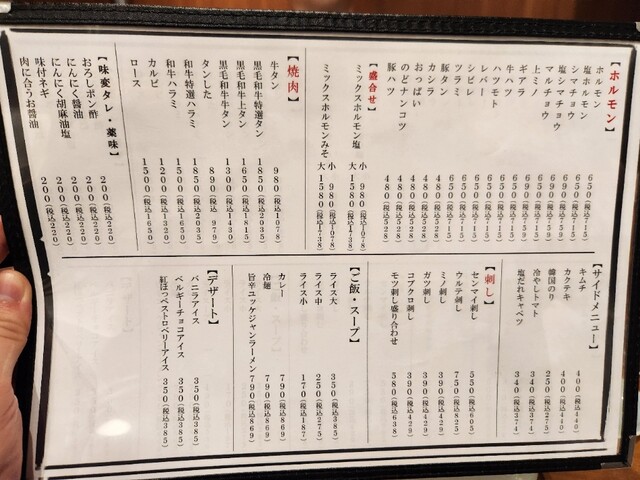 【ホルモン】
ホルモン 650(税込715)
塩ホルモン 650(税込715)
シマチョウ
塩シマチョウ
マルチョウ
上ミノ
ギアラ
牛ハツ 650(税込715)
ハツモト 650(税込715)
レバー 650(税込715)
シビレ 650(税込715)
ツラミ 650(税込715)
豚タン 480(税込528)
カシラ 480(税込528)
おっぱい 480(税込528)
のどナンコツ 480(税込528)
豚ハツ 480(税込528)
【盛合せ】
ミックスホルモン塩 小 980(税込1078)
大 1580(税込1738)
ミックスホルモンみそ 小 980(税込1078)
大 1580(税込1738)
【焼肉】
牛タン 980(税込1078)
黒毛和牛特選タン 1850(税込2035)
黒毛和牛上タン 1650(税込1815)
黒毛和牛牛タン 1300(税込1430)
タンした 890(税込979)
和牛特選ハラミ 1850(税込2035)
和牛ハラミ 1500(税込1650)
カルビ 1200(税込1320)
ロース 1500(税込1650)
【味変タレ・薬味】
おろしポン酢 200(税込220)
にんにく醤油 200(税込220)
にんにく胡麻油塩 200(税込220)
味付ネギ 200(税込220)
肉に合うお醤油 200(税込220)
【サイドメニュー】
キムチ 400(税込440)
カクテキ 400(税込440)
韓国のり 250(税込275)
冷やしトマト 340(税込374)
塩だれキャベツ 340(税込374)
【刺し】
センマイ刺し 550(税込605)
ウルテ刺し 750(税込825)
ミノ刺し 390(税込429)
ガツ刺し 390(税込429)
コブクロ刺し 390(税込429)
モツ刺し盛り合わせ 580(税込638)
【ご飯・スープ】
ライス大 350(税込385)
ライス中 250(税込275)
ライス小 170(税込187)
カレー 790(税込869)
冷麺 790(税込869)
旨辛ユッケジャンラーメン 790(税込869)
【デザート】
バニラアイス 350(税込385)
ベルギーチョコアイス 350(税込385)
紅ほっぺストロベリーアイス 350(税込385)